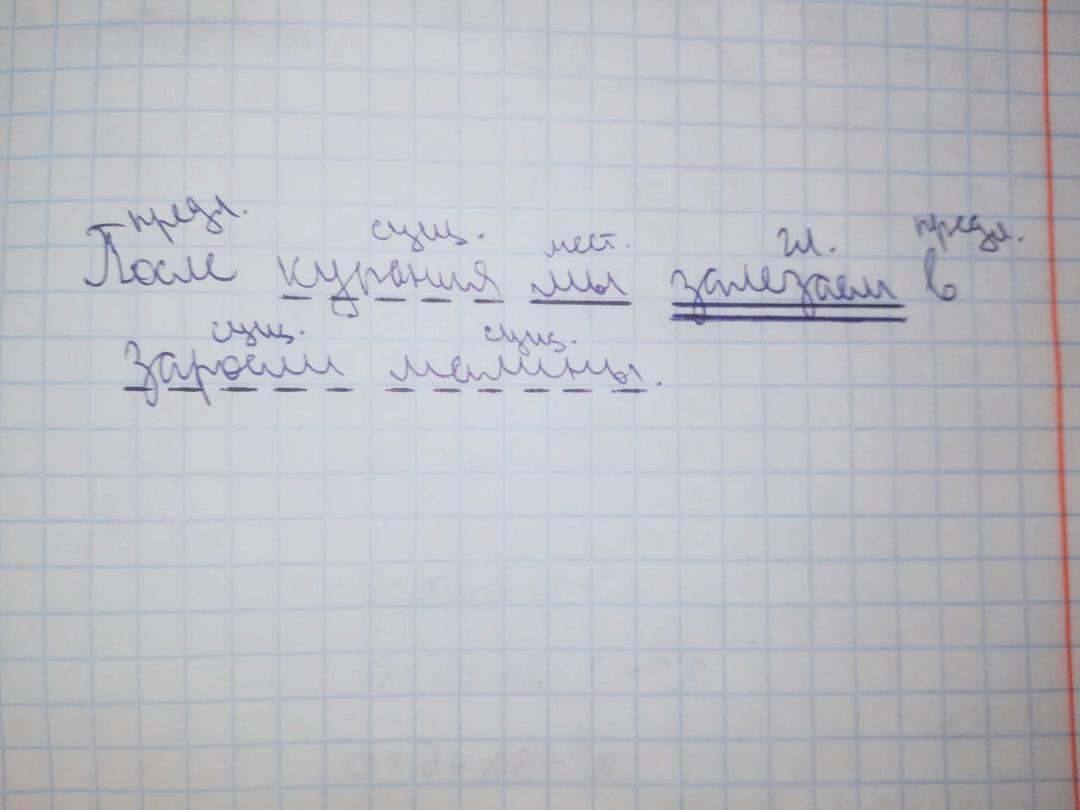 предл. сущ. мест. гл. предл.
После купания мы залезаем в
сущ. сущ.
заросли малины.